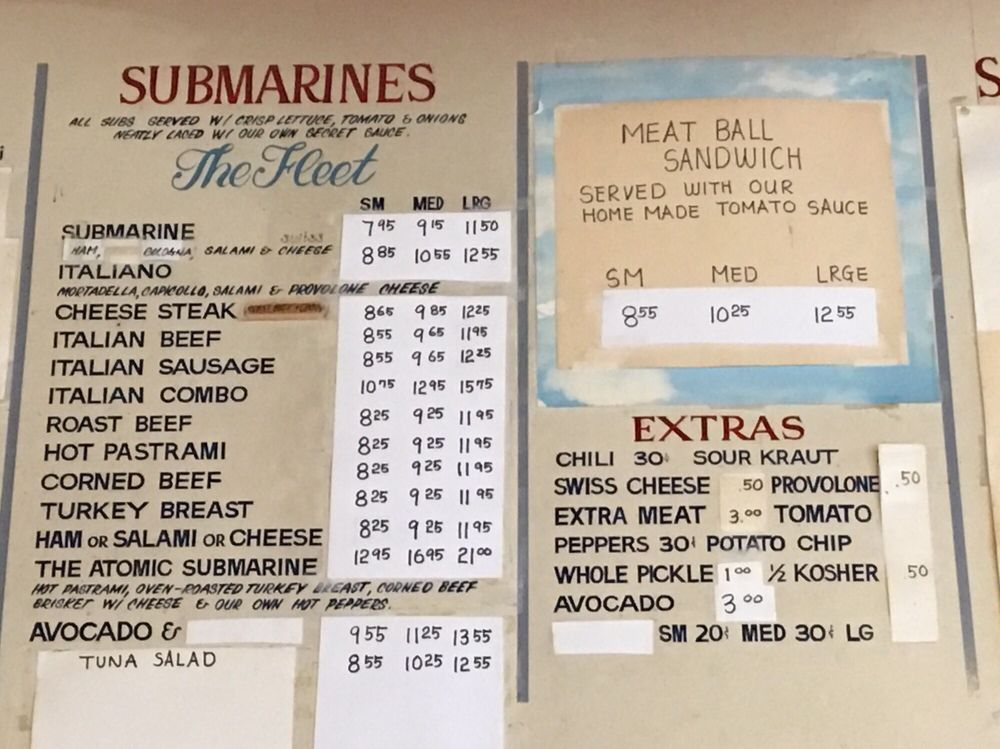 SUBMARINES
ALL SUBS SERVED W/ CRISP LETTUCE, TOMATO & ONIONS
NEATLY LACED W/ OUR OWN SECRET SAUCE.
The Fleet
SM MED LRG
SUBMARINE 7 95 9 15 11 50
HAM, BOLOGNA, SALAMI & CHEESE
ITALIANO 8 85 10 55 12 55
MORTADELLA, CAPICOLLO, SALAMI & PROVOLONE CHEESE
CHEESE STEAK 8 65 9 85 12 25
ITALIAN BEEF 8 55 9 65 11 95
ITALIAN SAUSAGE 8 55 9 65 12 25
ITALIAN COMBO 10 75 12 95 15 75
ROAST BEEF 8 25 9 25 11 95
HOT PASTRAMI 8 25 9 25 11 95
CORNED BEEF 8 25 9 25 11 95
TURKEY BREAST 8 25 9 25 11 95
HAM OR SALAMI OR CHEESE 8 25 9 25 11 95
THE ATOMIC SUBMARINE 12 95 16 95 21 00
HOT PASTRAMI, OVEN-ROASTED TURKEY BREAST, CORNED BEEF
BRISKET W/ CHEESE & OUR OWN HOT PEPPERS.
AVOCADO & 9 55 11 25 13 55
TUNA SALAD 8 55 10 25 12 55
MEAT BALL
SANDWICH
SERVED WITH OUR
HOME MADE TOMATO SAUCE
SM MED LRGE
8 55 10 25 12 55
EXTRAS
CHILI 30¢ SOUR KRAUT
SWISS CHEESE .50 PROVOLONE .50
EXTRA MEAT 3.00 TOMATO
PEPPERS 30¢ POTATO CHIP
WHOLE PICKLE 1 00 ½ KOSHER .50
AVOCADO 3 00
SM 20¢ MED 30¢ LG